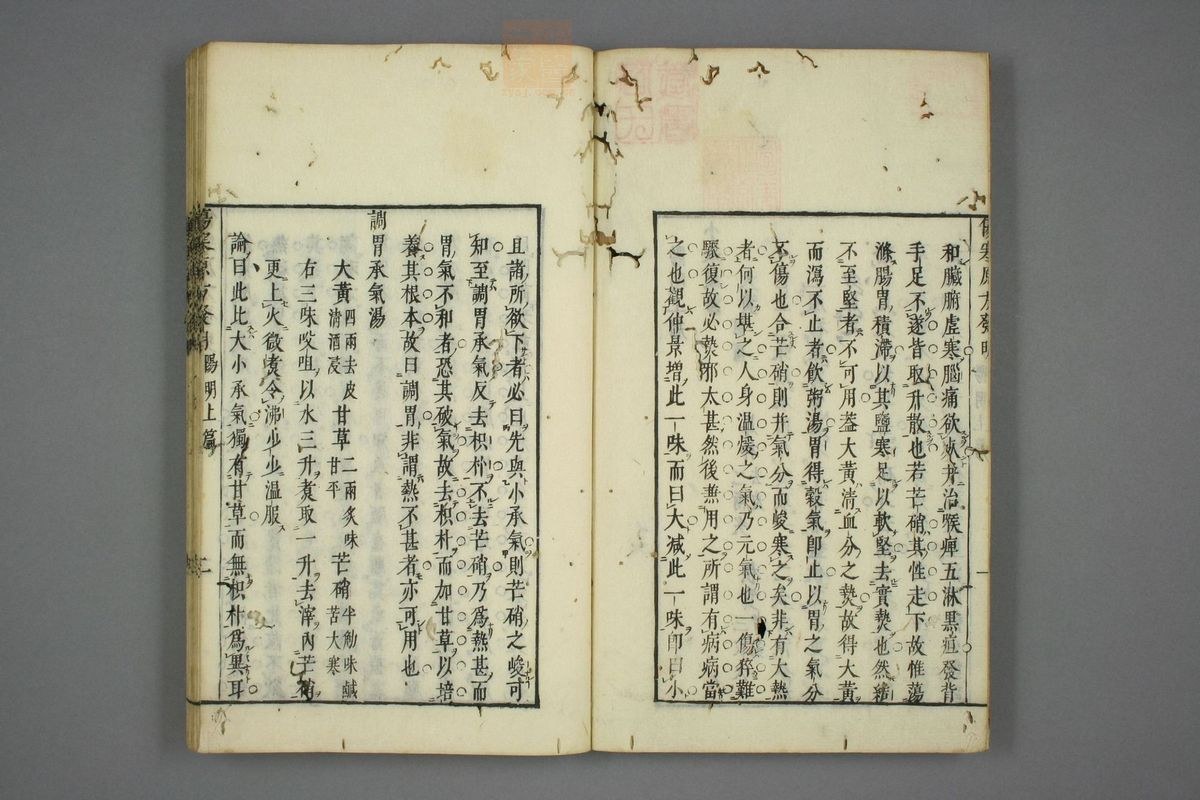 和臟腑虛寒腦痛欲死并治喉痺五淋黒疸發背
手足不遂皆取升散也若芒硝其性走下故惟蕩
滌腸胃積滯以其鹽寒足以軟堅去實𤍠也然結
不至堅者不可用葢大黃清血分之𤍠故得大黃
而瀉不止者飲粥湯胃得穀氣卽止以胃之氣分
不傷也合芒硝則并氣分而峻寒之矣非有大熱
者何以堪之人身溫煖之氣乃元氣也一傷猝難
驟復故必𤍠邪太甚然後兼用之所謂有病病當
之也觀仲景增此一味而曰大减此一味卽曰小
且諸所欲下者必曰先與小承氣則芒硝之峻可
知至調胃承氣反去枳朴不去芒硝乃爲熱甚而
胃氣不和者恐其破氣故去枳朴而加甘草以培
養其根本故曰調胃非謂熱不甚者亦可用也
調胃承氣湯
大黃 四兩去皮清酒浸 甘草 二兩炙味甘平 芒硝 半觔味鹹苦大寒
右三味㕮咀以水三升煑取一升去滓內芒硝
更上火微煑令沸少少溫服
論曰此比大小承氣獨有甘草而無枳朴爲異耳
陽明上篇